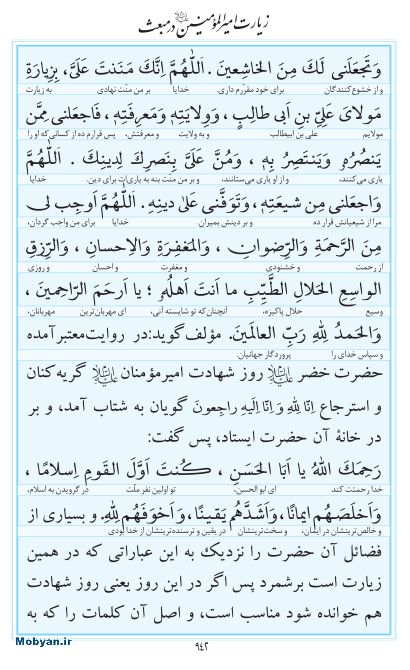 زیارت امیرالمؤمنین علیه‌السلام در مبعث
وَتَجعَلَنی لَكَ مِنَ الخاشِعینَ . اَللّٰهُمَّ اِنَّكَ مَنَنتَ عَلَیَّ، بِزِیارَةِ
و از خشوع کنندگان برای خود مقرّرم داری. خدایا بر من منّت نهادی به زیارت
مَولایَ عَلیِّ بنِ اَبی طالِبٍ، وَوِلایَتِهٖ وَمَعرِفَتِهٖ، فَاجعَلنی مِمَّن
مولایم علی بن ابیطالب و به ولایت و معرفتش، پس قرارم ده از کسانی که او را
یَنصُرُهُ وَیَنتَصِرُ بِهٖ ، وَمُنَّ عَلَیَّ بِنَصرِكَ لِدینِكَ . اَللّٰهُمَّ
یاری می‌کنند، و از او یاری می‌ستانند، و بر من منّت بنه به یاری‌ات برای دین. خدایا
وَاجعَلنی مِن شیعَتِهٖ، وَتَوَفَّنی عَلیٰ دینِهٖ. اَللّٰهُمَّ اَوجِب لی
مرا از شیعیانش قرار ده و بر دینش بمیران. خدایا برای من واجب گردان،
مِنَ الرَّحمَةِ وَالرِّضوانِ، وَالمَغفِرَةِ وَالاِحسانِ، وَالرِّزقِ
از رحمت و خشنودی و مغفرت و احسان و روزی
الواسِعِ الحَلالِ الطَّیِّبِ ما اَنتَ اَهلُهُ ؛ یا اَرحَمَ الرّاحِمینَ ،
وسیع حلال پاکیزه، آنچنان‌که تو شایسته آنی، ای مهربان‌ترین مهربانان،
وَالحَمدُ لِلّٰهِ رَبِّ العالَمینَ. مؤلف گوید: در روایت معتبر آمده
و سپاس خدای را پروردگار جهانیان.
حضرت خضر علیه‌السلام روز شهادت امیرمؤمنان علیه‌السلام گریه‌کنان
و استرجاع اِنّا لِلّٰهِ وَ اِنّا اِلَیهِ راجِعونَ گویان به شتاب آمد، و بر
در خانهٔ آن حضرت ایستاد، پس گفت:
رَحِمَكَ اللّٰهُ یا اَبَا الحَسَنِ ، کُنتَ اَوَّلَ القَومِ اِسلامًا ،
خدا رحمتت کند ای ابو الحسن، تو اولین نفر ملت در گرویدن به اسلام،
وَاَخلَصَهُم ایمانًا، وَاَشَدَّهُم یَقینًا، وَاَخوَفَهُم لِلّٰهِ. و بسیاری از
و خالص‌ترینشان در ایمان، و سخت‌ترینشان در یقین و ترسنده‌ترینشان از خدا بودی
فضائل آن حضرت را نزدیک به این عباراتی که در همین
زیارت است برشمرد پس اگر در این روز یعنی روز شهادت
هم خوانده شود مناسب است، و اصل آن کلمات را که به
۹۴۲
Mobyan.ir